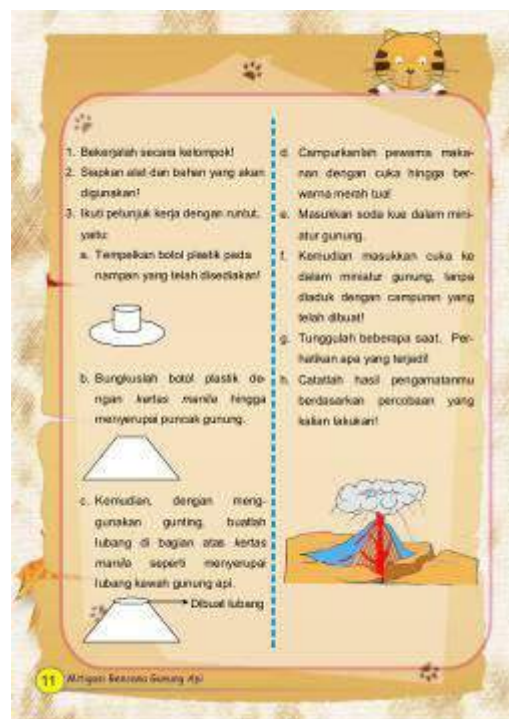 1. Bekerjalah secara kelompok!
2. Siapkan alat dan bahan yang akan
digunakan!
3. Ikuti petunjuk kerja dengan runtut,
yaitu:
a. Tempelkan botol plastik pada
nampan yang telah disediakan!
b. Bungkuslah botol plastik de-
ngan kertas manila hingga
menyerupai puncak gunung.
c. Kemudian, dengan meng-
gunakan gunting, buatlah
lubang di bagian atas kertas
manila seperti menyerupai
lubang kawah gunung api.
Dibuat lubang
d. Campurkanlah pewarna maka-
nan dengan cuka hingga ber-
warna merah tua!
e. Masukkan soda kue dalam mini-
atur gunung.
f. Kemudian masukkan cuka ke
dalam miniatur gunung, tanpa
diaduk dengan campuran yang
telah dibuat!
g. Tunggulah beberapa saat. Per-
hatikan apa yang terjadi!
h. Catatlah hasil pengamatanmu
berdasarkan percobaan yang
kalian lakukan!
11 Mitigasi Bencana Gunung Api